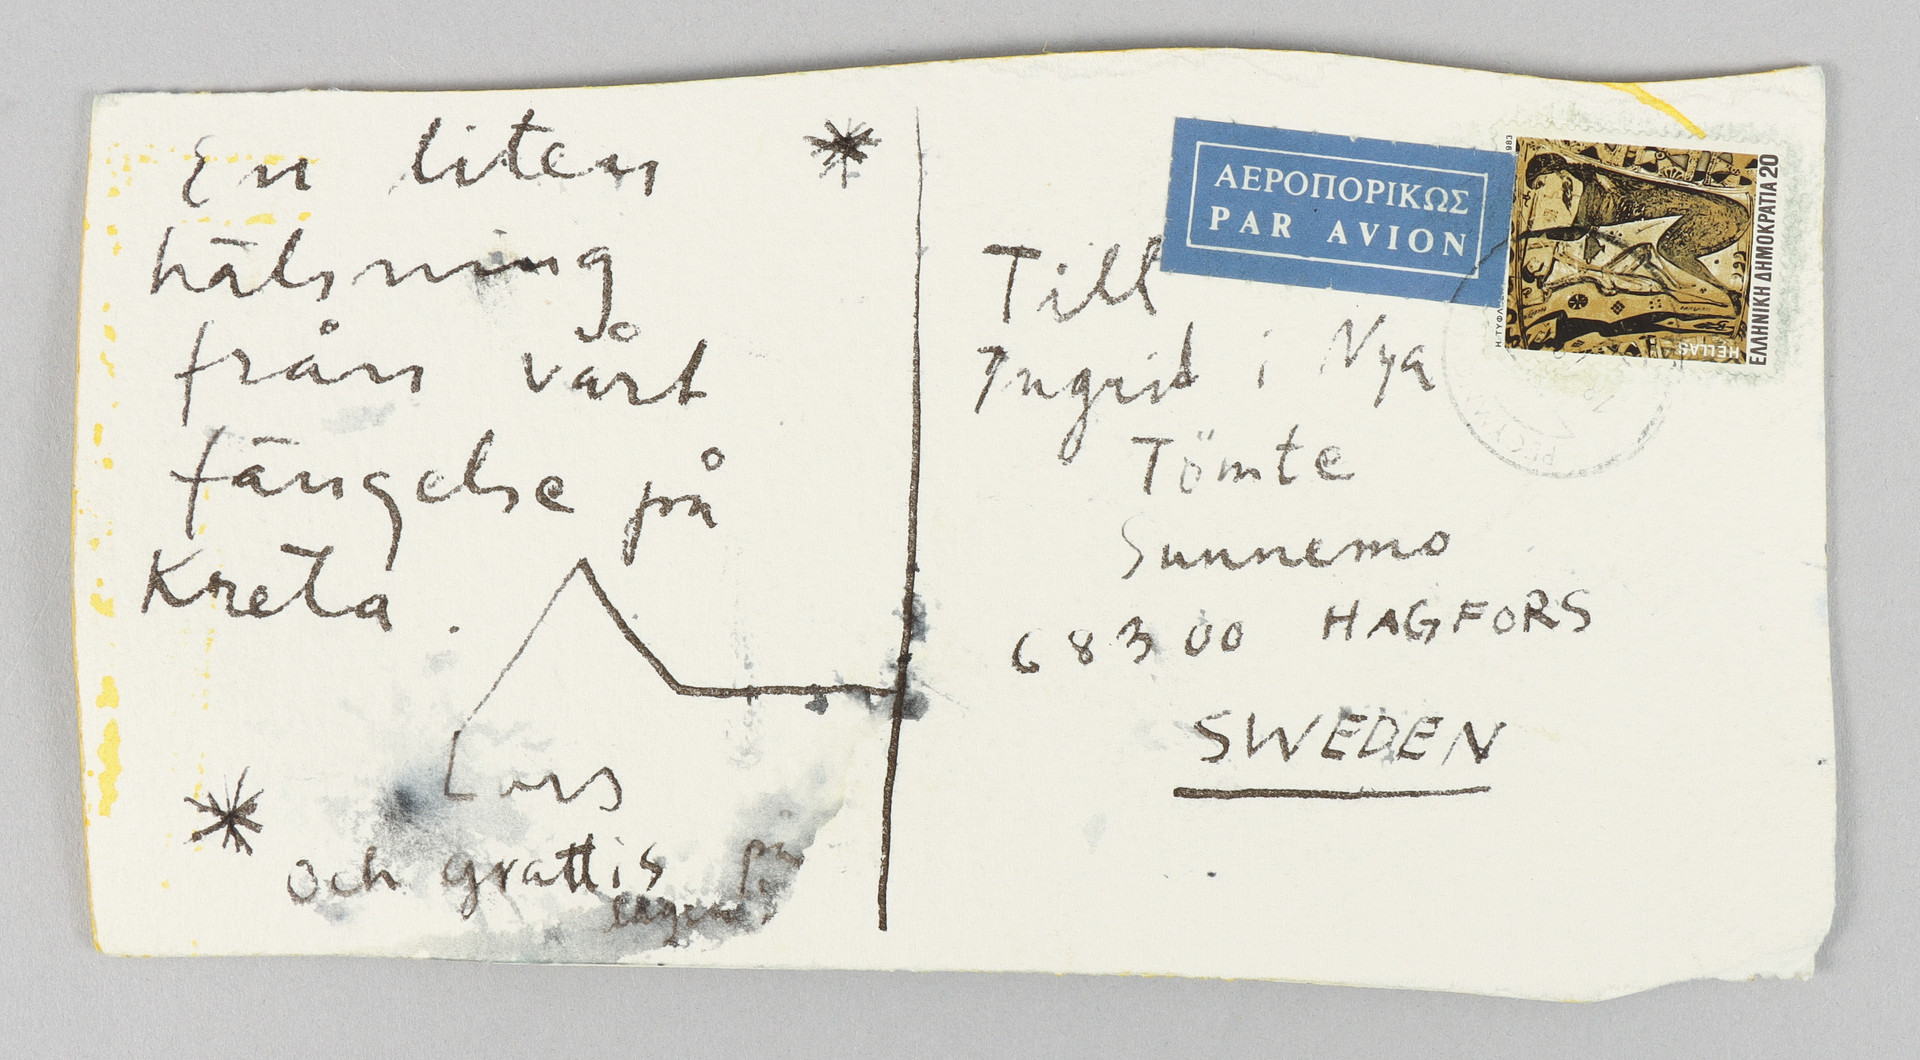 En liten
hälsning
från vårt
fängelse på
Kreta.
Lars
och grattis på
dagen
ΑΕΡΟΠΟΡΙΚΩΣ
PAR AVION
ΕΛΛΗΝΙΚΗ ΔΗΜΟΚΡΑΤΙΑ 20
HELLAS
Till
Ingrid i Nya
Tömte
Sunnemo
68300 HAGFORS
SWEDEN